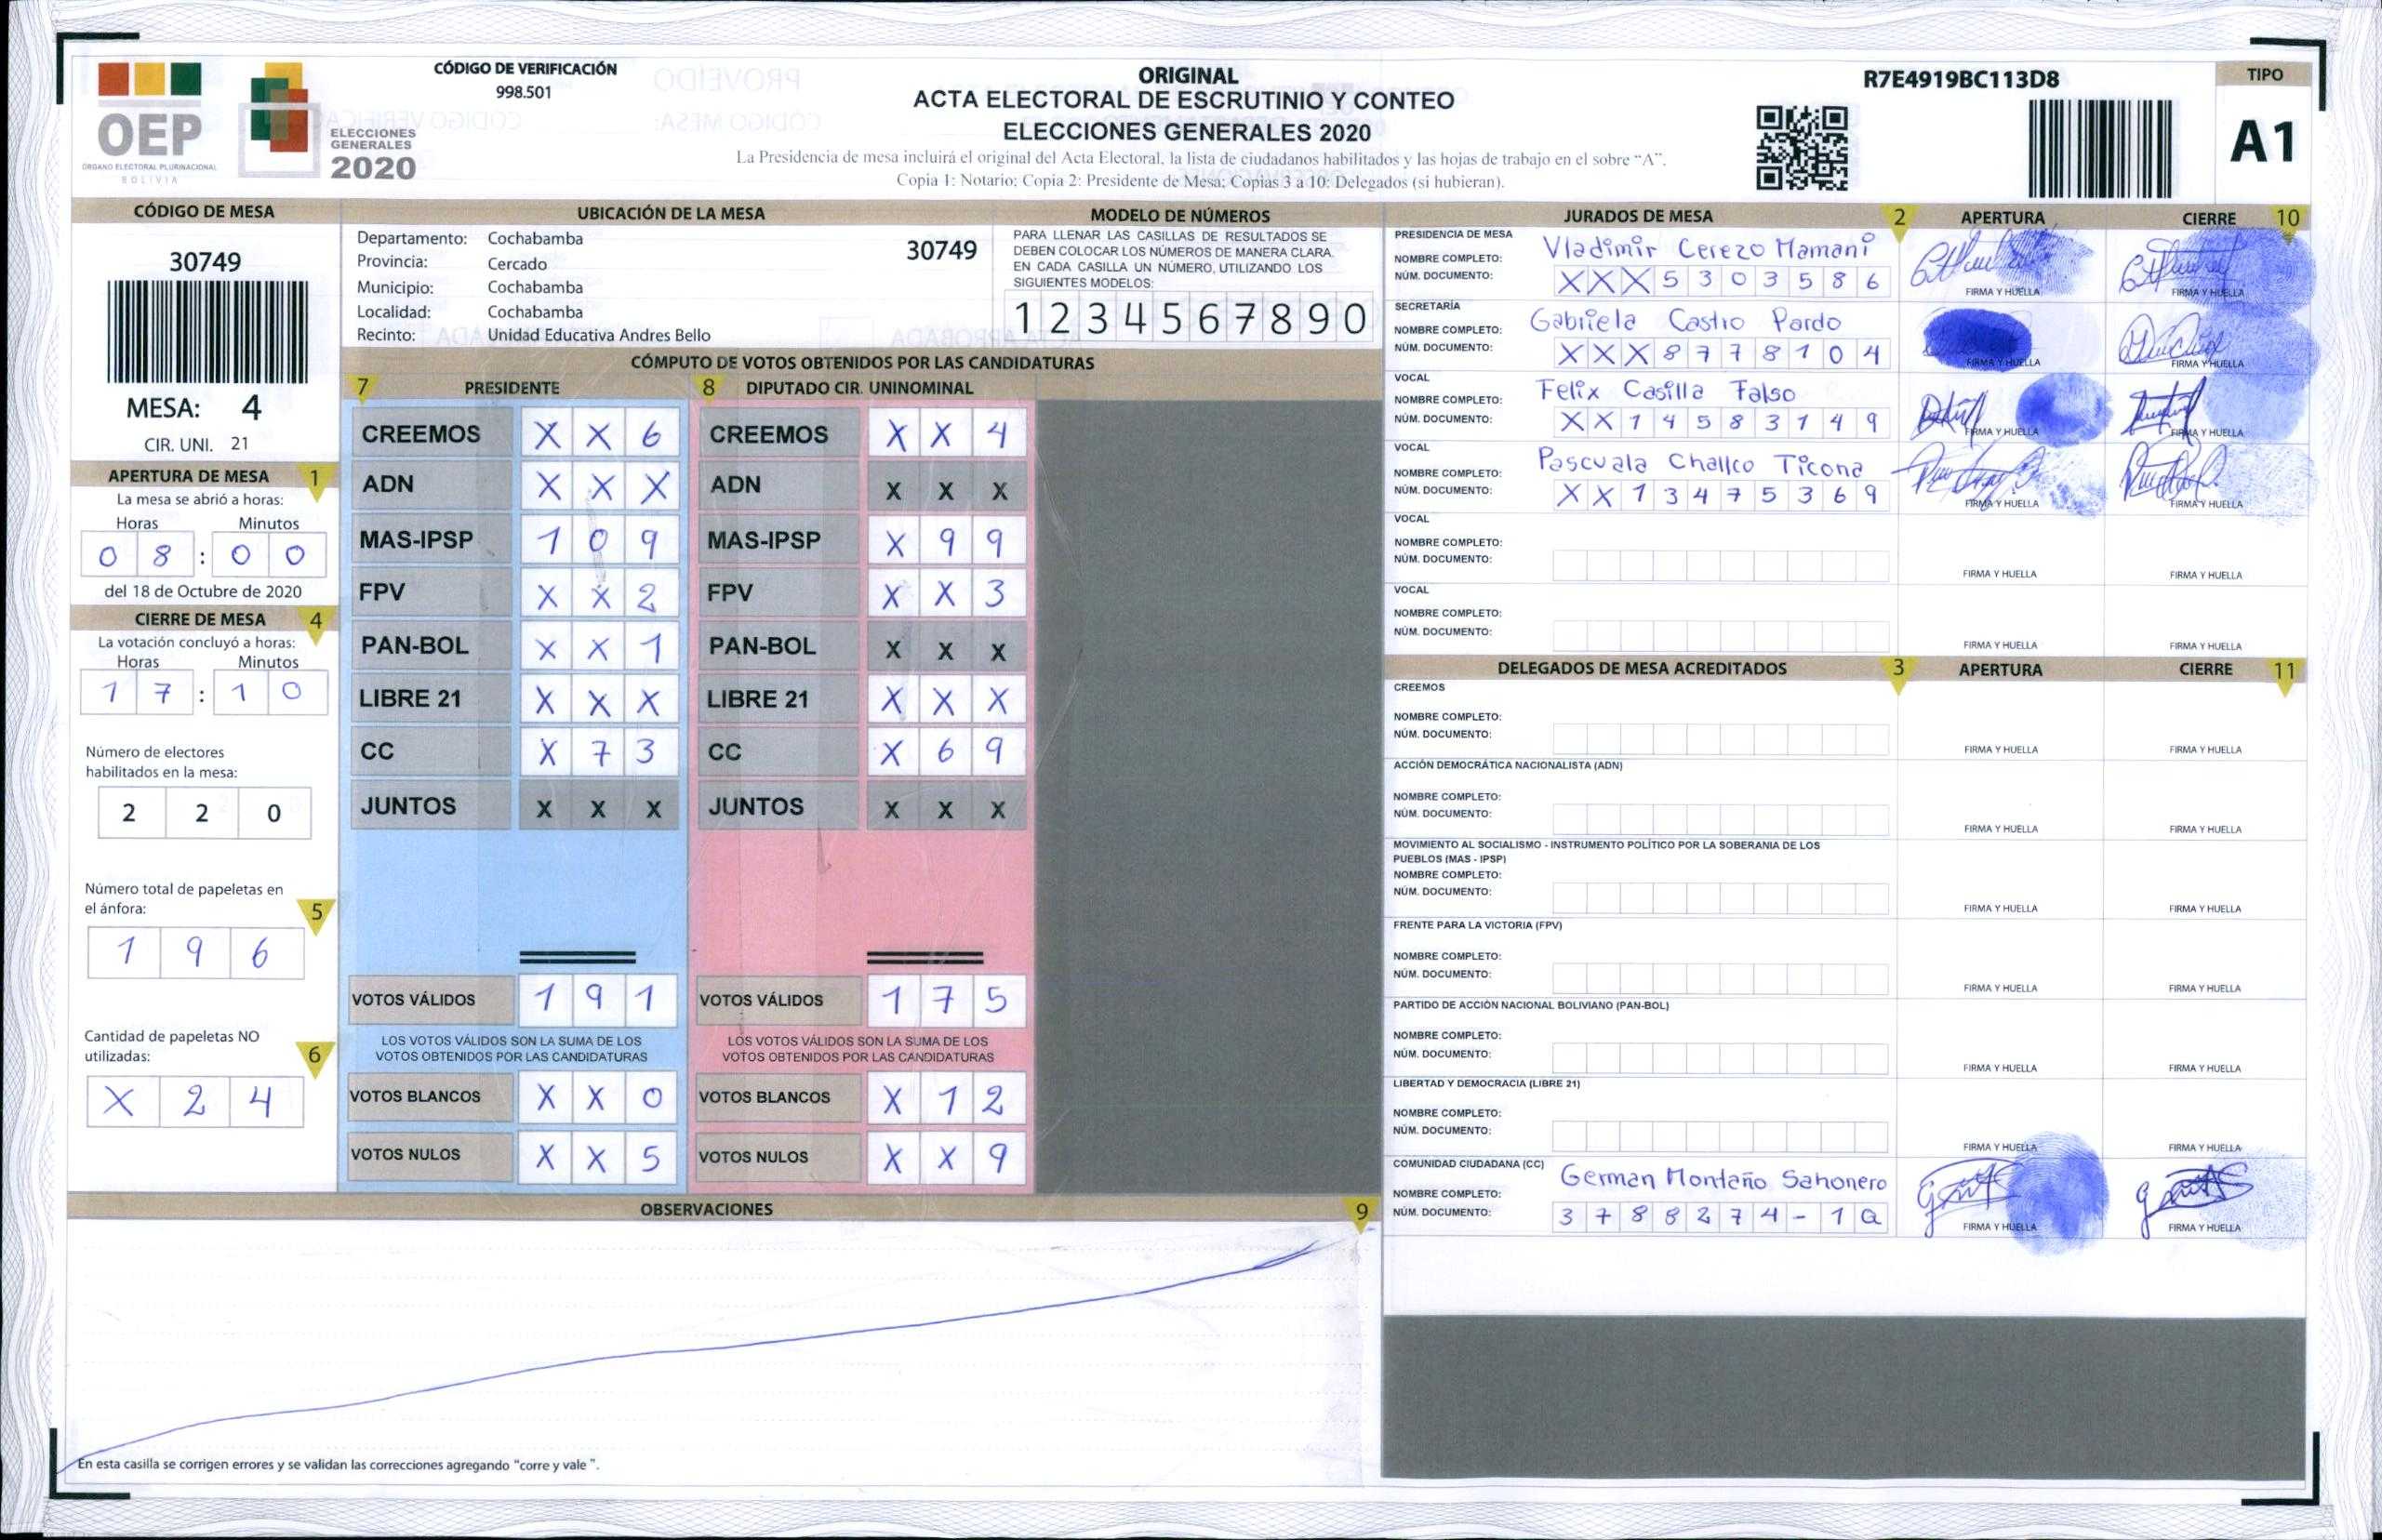 OEP
ÓRGANO ELECTORAL PLURINACIONAL
BOLIVIA
ELECCIONES
GENERALES
2020
CÓDIGO DE VERIFICACIÓN
998.501
ORIGINAL
ACTA ELECTORAL DE ESCRUTINIO Y CONTEO
ELECCIONES GENERALES 2020
La Presidencia de mesa incluirá el original del Acta Electoral, la lista de ciudadanos habilitados y las hojas de trabajo en el sobre "A".
Copia 1: Notario; Copia 2: Presidente de Mesa; Copias 3 a 10: Delegados (si hubieran).
R7E4919BC113D8
TIPO
A1
CÓDIGO DE MESA
30749
MESA: 4
CIR. UNI. 21
APERTURA DE MESA 1
La mesa se abrió a horas:
Horas Minutos
0 8 : 0 0
del 18 de Octubre de 2020
CIERRE DE MESA 4
La votación concluyó a horas:
Horas Minutos
1 7 : 1 0
Número de electores
habilitados en la mesa:
2 2 0
Número total de papeletas en
el ánfora: 5
1 9 6
Cantidad de papeletas NO
utilizadas: 6
X 2 4
UBICACIÓN DE LA MESA
Departamento: Cochabamba 30749
Provincia: Cercado
Municipio: Cochabamba
Localidad: Cochabamba
Recinto: Unidad Educativa Andres Bello
MODELO DE NÚMEROS
PARA LLENAR LAS CASILLAS DE RESULTADOS SE
DEBEN COLOCAR LOS NÚMEROS DE MANERA CLARA.
EN CADA CASILLA UN NÚMERO, UTILIZANDO LOS
SIGUIENTES MODELOS:
1 2 3 4 5 6 7 8 9 0
CÓMPUTO DE VOTOS OBTENIDOS POR LAS CANDIDATURAS
7 PRESIDENTE 8 DIPUTADO CIR. UNINOMINAL
CREEMOS X X 6 CREEMOS X X 4
ADN X X X ADN X X X
MAS-IPSP 1 0 9 MAS-IPSP X 9 9
FPV X X 2 FPV X X 3
PAN-BOL X X 1 PAN-BOL X X X
LIBRE 21 X X X LIBRE 21 X X X
CC X 7 3 CC X 6 9
JUNTOS X X X JUNTOS X X X
VOTOS VÁLIDOS 1 9 1 VOTOS VÁLIDOS 1 7 5
LOS VOTOS VÁLIDOS SON LA SUMA DE LOS LOS VOTOS VÁLIDOS SON LA SUMA DE LOS
VOTOS OBTENIDOS POR LAS CANDIDATURAS VOTOS OBTENIDOS POR LAS CANDIDATURAS
VOTOS BLANCOS X X 0 VOTOS BLANCOS X 1 2
VOTOS NULOS X X 5 VOTOS NULOS X X 9
OBSERVACIONES 9
En esta casilla se corrigen errores y se validan las correcciones agregando "corre y vale ".
JURADOS DE MESA 2 APERTURA CIERRE 10
PRESIDENCIA DE MESA
NOMBRE COMPLETO: Vladimir Cerezo Mamani
NÚM. DOCUMENTO: X X X 5 3 0 3 5 8 6
FIRMA Y HUELLA FIRMA Y HUELLA
SECRETARÍA
NOMBRE COMPLETO: Gabriela Castro Pardo
NÚM. DOCUMENTO: X X X 8 7 7 8 1 0 4
FIRMA Y HUELLA FIRMA Y HUELLA
VOCAL
NOMBRE COMPLETO: Felix Casilla Falso
NÚM. DOCUMENTO: X X 1 4 5 8 3 1 4 9
FIRMA Y HUELLA FIRMA Y HUELLA
VOCAL
NOMBRE COMPLETO: Pascuala Challco Ticona
NÚM. DOCUMENTO: X X 1 3 4 7 5 3 6 9
FIRMA Y HUELLA FIRMA Y HUELLA
VOCAL
NOMBRE COMPLETO:
NÚM. DOCUMENTO:
FIRMA Y HUELLA FIRMA Y HUELLA
VOCAL
NOMBRE COMPLETO:
NÚM. DOCUMENTO:
FIRMA Y HUELLA FIRMA Y HUELLA
DELEGADOS DE MESA ACREDITADOS 3 APERTURA CIERRE 11
CREEMOS
NOMBRE COMPLETO:
NÚM. DOCUMENTO:
FIRMA Y HUELLA FIRMA Y HUELLA
ACCIÓN DEMOCRÁTICA NACIONALISTA (ADN)
NOMBRE COMPLETO:
NÚM. DOCUMENTO:
FIRMA Y HUELLA FIRMA Y HUELLA
MOVIMIENTO AL SOCIALISMO - INSTRUMENTO POLÍTICO POR LA SOBERANIA DE LOS
PUEBLOS (MAS - IPSP)
NOMBRE COMPLETO:
NÚM. DOCUMENTO:
FIRMA Y HUELLA FIRMA Y HUELLA
FRENTE PARA LA VICTORIA (FPV)
NOMBRE COMPLETO:
NÚM. DOCUMENTO:
FIRMA Y HUELLA FIRMA Y HUELLA
PARTIDO DE ACCIÓN NACIONAL BOLIVIANO (PAN-BOL)
NOMBRE COMPLETO:
NÚM. DOCUMENTO:
FIRMA Y HUELLA FIRMA Y HUELLA
LIBERTAD Y DEMOCRACIA (LIBRE 21)
NOMBRE COMPLETO:
NÚM. DOCUMENTO:
FIRMA Y HUELLA FIRMA Y HUELLA
COMUNIDAD CIUDADANA (CC)
NOMBRE COMPLETO: German Montaño Sahonero
NÚM. DOCUMENTO: 3 7 8 8 2 7 4 - 1 Q
FIRMA Y HUELLA FIRMA Y HUELLA